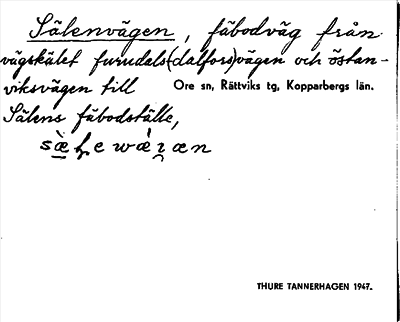 Sälenvägen, fäbodväg från
vägskälet furudals(dalfors)vägen och östan-
viksvägen till Ore sn, Rättviks tg, Kopparbergs län.
Sälens fäbodställe,
THURE TANNERHAGEN 1947.